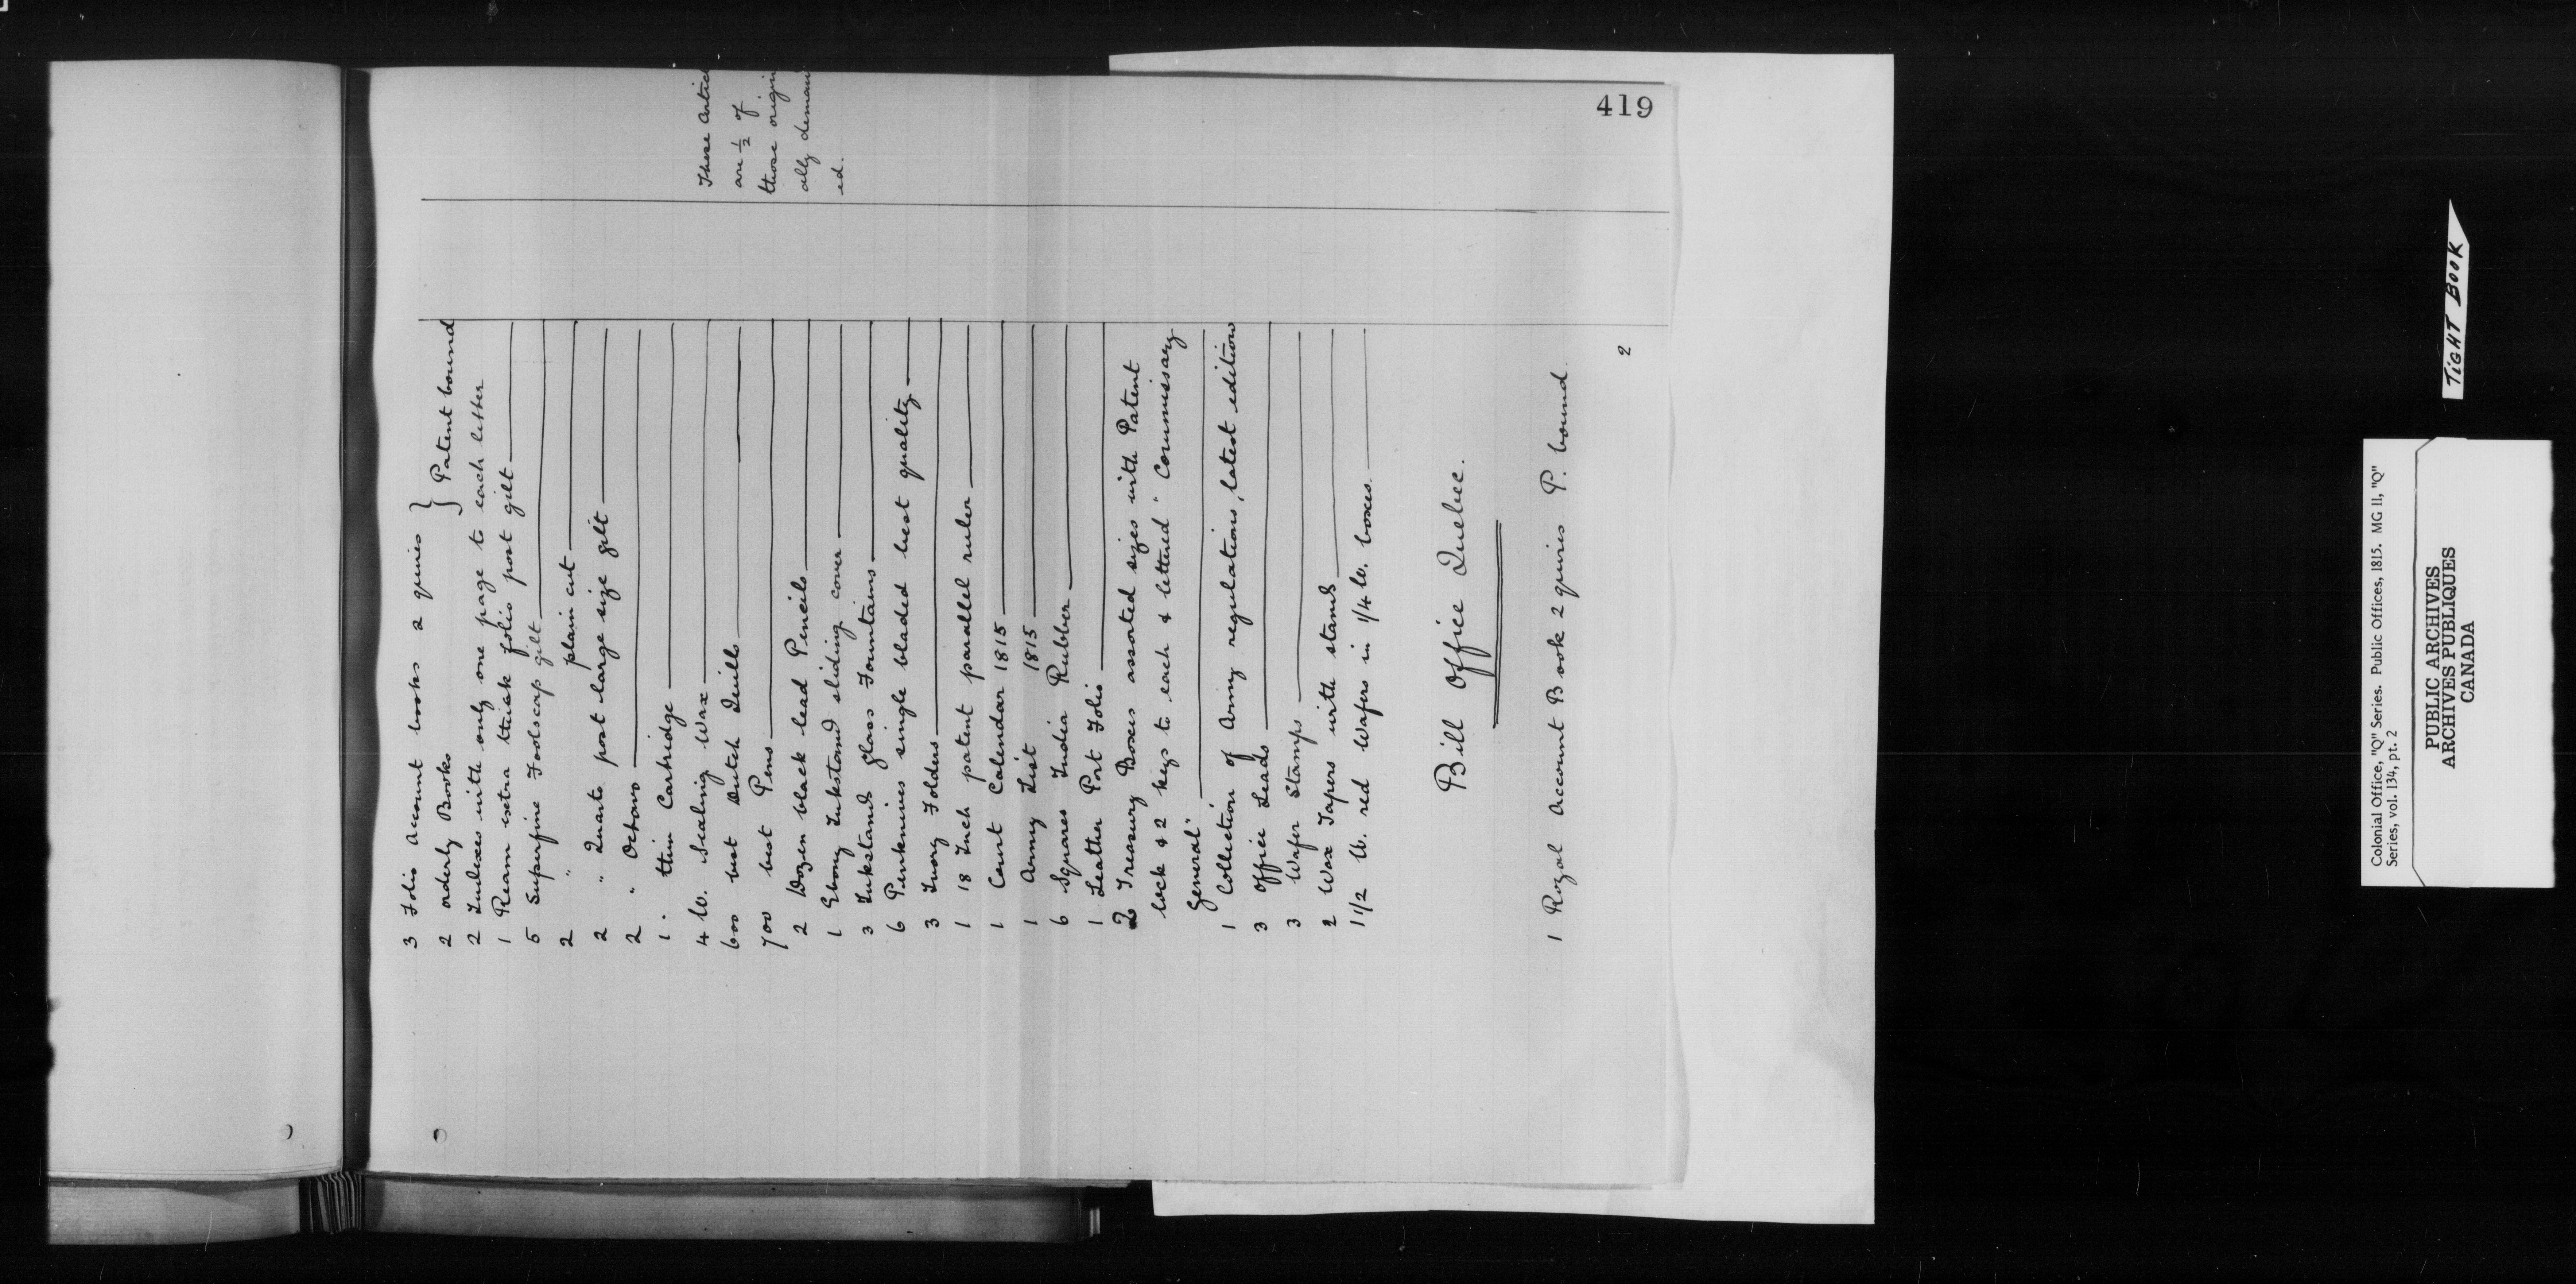 419
3 Folio Account books 2 quires } Patent bound
2 orderly Books
2 Indexes with only one page to each letter
1 Ream extra thick folio post gilt
5 Superfine Foolscap gilt
2 " plain cut
2 " Quarto post large size gilt
2 " Octavo
1 . thin Cartridge
4 lb. Sealing Wax
600 best Dutch Quills
700 best Pens
2 Dozen black lead Pencils
1 Ebony Inkstand sliding cover
3 Inkstands glass Fountains
6 Penknives single bladed best quality
3 Ivory Folders
1 18 Inch patent parallel ruler
1 Court Calendar 1815
1 Army List 1815
6 Squares India Rubber
1 Leather Port Folio
2 Treasury Boxes assorted sizes with Patent
lock & 2 keys to each & lettered "Commissary
General"
1 Collection of Army regulations, latest edition
3 Office Leads
3 Wafer Stamps
2 Wax Tapers with stands
1 1/2 lb. red Wafers in 1/4 lb. boxes.
These Artic
are 1/2 of
those origin
ally deman
ed.
Bill Office Quebec.
1 Royal Account Book 2 quires P. bound
2
TIGHT BOOK
Colonial Office, "Q" Series. Public Offices, 1815. MG 11, "Q"
Series, vol. 134, pt. 2
PUBLIC ARCHIVES
ARCHIVES PUBLIQUES
CANADA